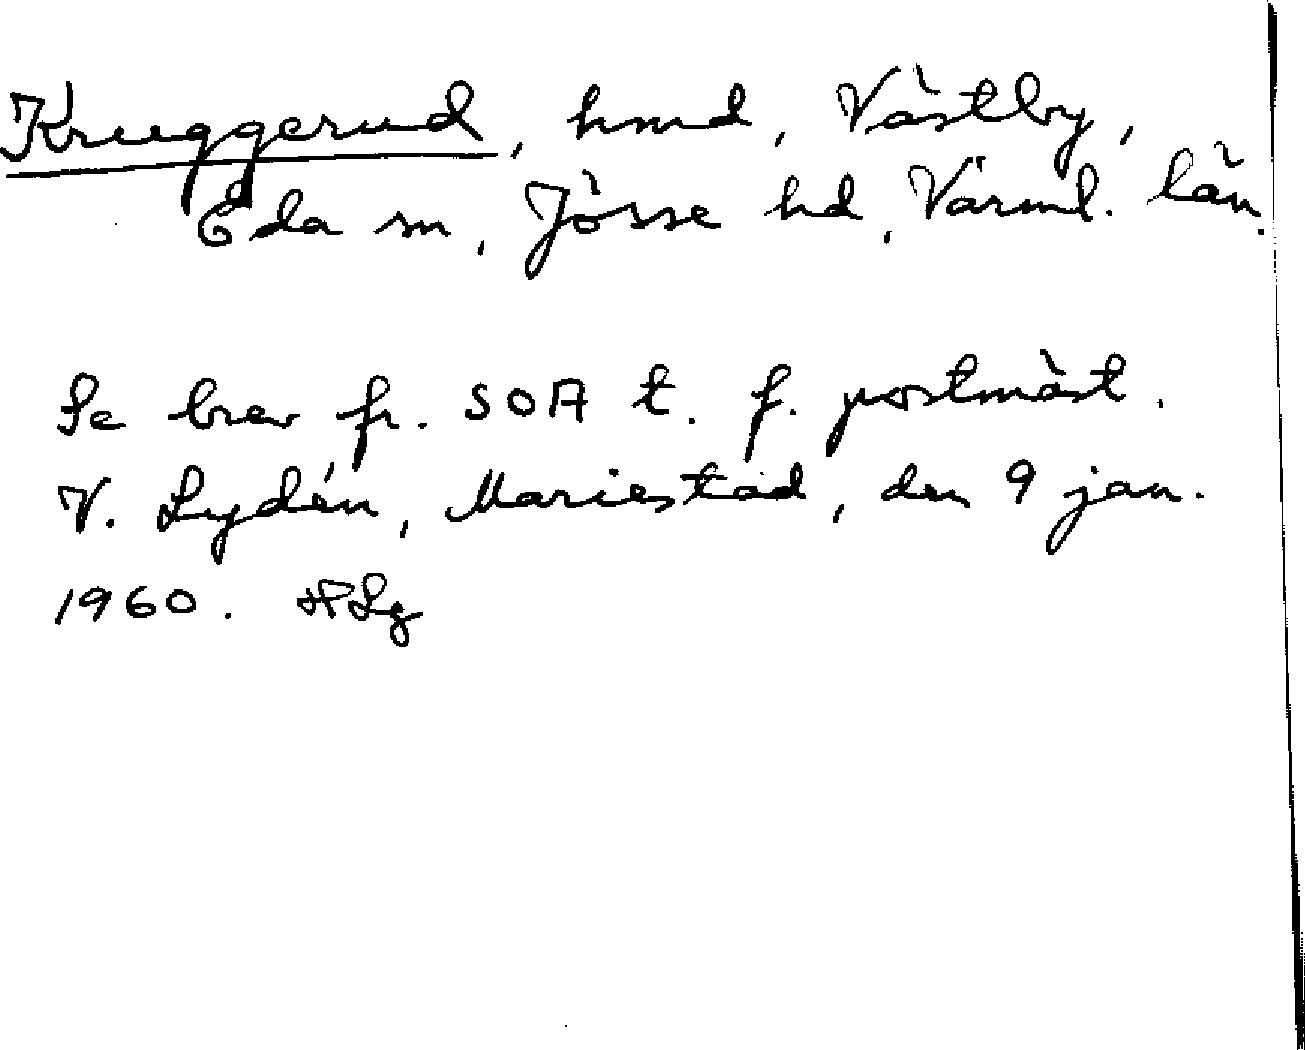 Kruggerud, hmd, Västby,
Eda sn, Jösse hd, Värml. län.
Se brev fr. SOA t. f. postmäst.
V. Lydén, Mariestad, den 9 jan.
1960. HLg